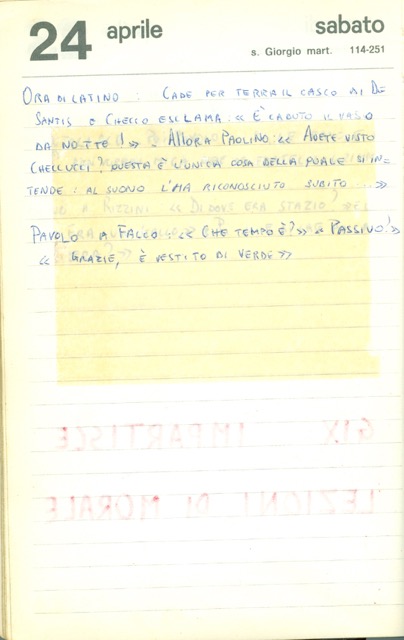 24 aprile sabato
s. Giorgio mart. 114-251
ORA DI LATINO : CADE PER TERRA IL CASCO DI DE
SANTIS E CHECCO ESCLAMA « È CADUTO IL VASO
DA NOTTE !! » . ALLORA PAOLINO « AVETE VISTO
CHELLUCCI? QUESTA È L'UNICA COSA DELLA QUALE SI IN-
TENDE : AL SUONO L'HA RICONOSCIUTO SUBITO ... »
PAVOLO A FALCO : « CHE TEMPO È? » « PASSIVO! »
« GRAZIE, È VESTITO DI VERDE »
GIX IMPARTISCE
LEZIONI DI MORALE